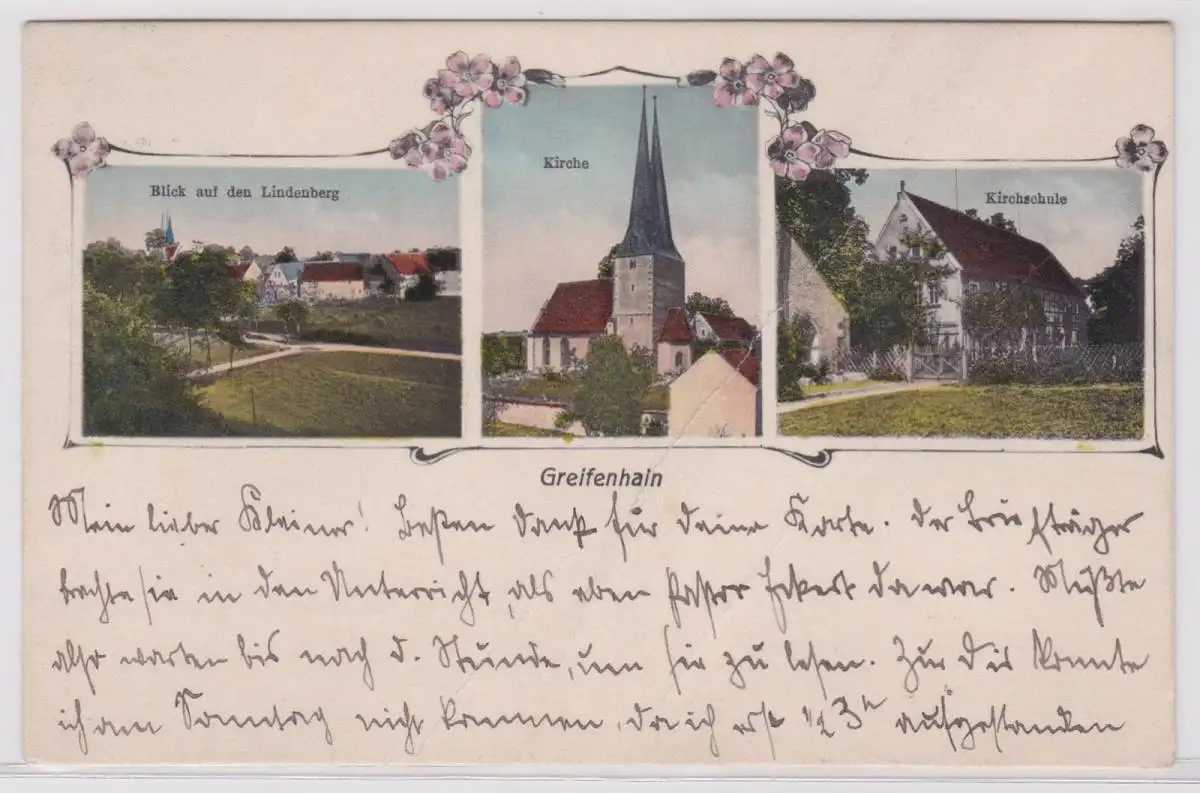 Blick auf den Lindenberg
Kirche
Kirchschule
Greifenhain
Mein lieber Kleiner! Besten Dank für deine Karte. Der Briefträger
brachte sie in den Unterricht, als eben Pastor Eckert da war. Mußte
also warten bis nach d. Stunde, um sie zu lesen. Zu Dir konnte
ich am Sonntag nicht kommen, da ich erst ½3h aufgestanden